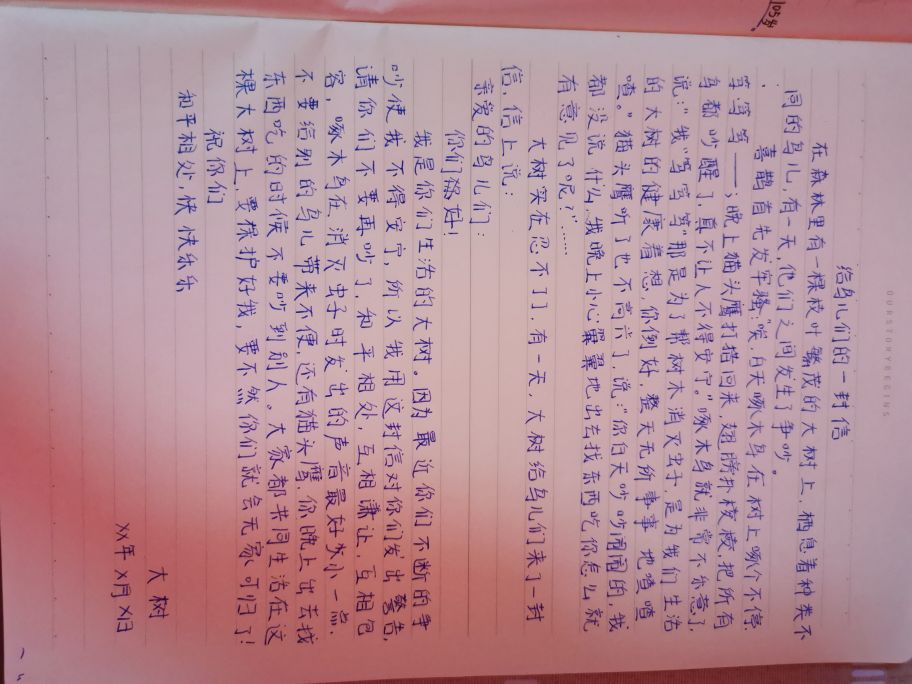 105数
OURSTORYBEGINS
给鸟儿们的一封信
在森林里有一棵枝叶繁茂的大树上,栖息着种类不
同的鸟儿,有一天,他们之间发生了争吵。
喜鹊首先发牢骚:“唉,白天啄木鸟在树上啄个不停,
笃笃笃——;晚上猫头鹰打猎回来,翅膀扑棱棱,把所有
鸟都吵醒了真不让人不得安宁。”啄木鸟就非常不乐意了,
说:“我“笃笃笃”那是为了帮树木消灭虫子,是为我们生活
的大树的健康着想,你倒好,整天无所事事地喳喳
喳。”猫头鹰听了也不高兴了,说:“你白天吵吵闹闹的,我
都没说什么,我晚上小心翼翼地出去找东西吃你怎么就
有意见了呢?”……
大树实在忍不了了,有一天,大树给鸟儿们来了一封
信,信上说:
亲爱的鸟儿们:
你们好!
我是你们生活的大树。因为最近你们不断的争
吵使我不得安宁,所以我用这封信对你们发出警告,
请你们不要再吵了,和平相处,互相谦让,互相包
容,啄木鸟在消灭虫子时发出的声音最好小一点,
不要给别的鸟儿带来不便,还有猫头鹰,你晚上出去找
东西吃的时候不要吵到别人。大家都共同生活在这
棵大树上,要保护好我,要不然你们就会无家可归了!
祝你们
和平相处,快快乐乐
大树
XX年X月X日